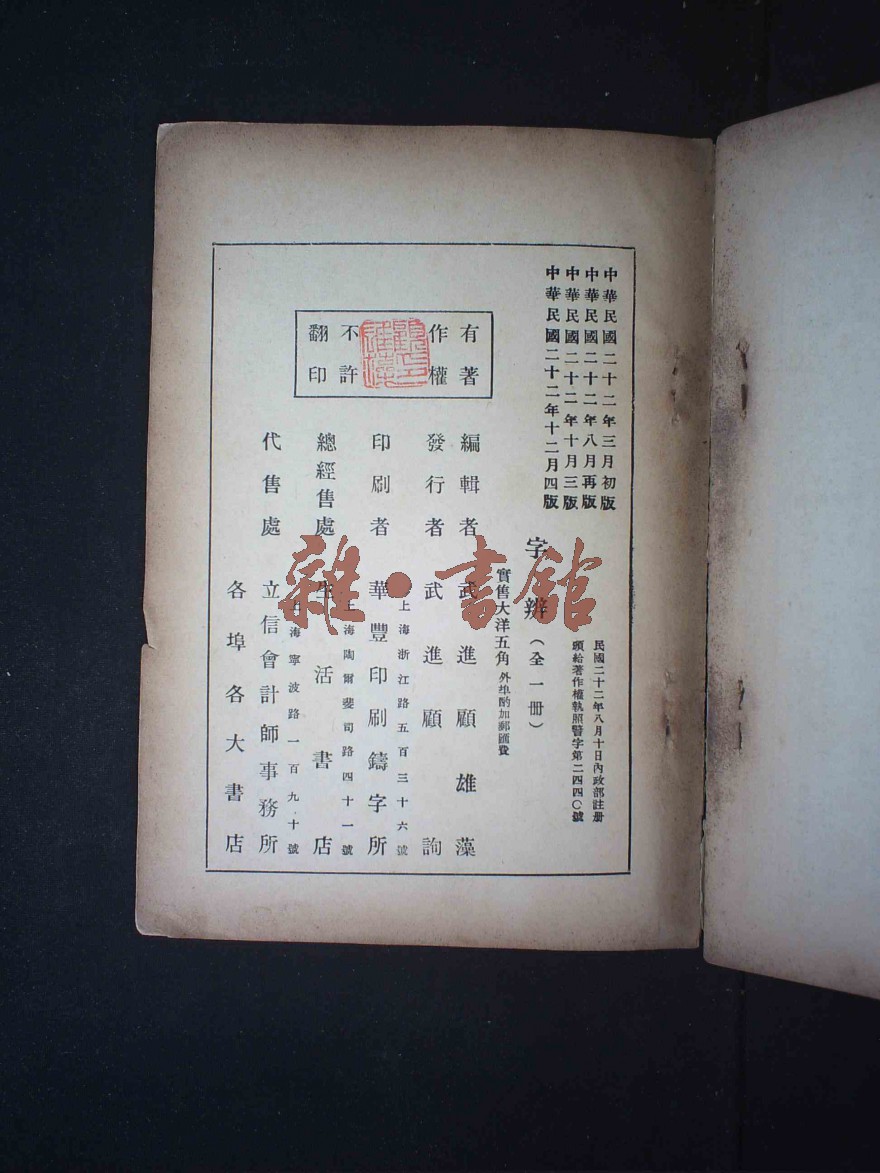 中華民國二十二年三月初版
中華民國二十二年八月再版
中華民國二十二年十月三版
中華民國二十二年十二月四版
民國二十二年八月十日內政部註册
頒給著作權執照警字第二四四〇號
字辨(全一册)
實售大洋五角外埠酌加郵匯費
有著
作權
不許
翻印
編輯者 武進顧雄藻
發行者 武進顧詢
上海浙江路五百三十六號
印刷者 華豐印刷鑄字所
上海陶爾斐司路四十一號
總經售處 生活書店
上海寧波路一百九十號
代售處 立信會計師事務所
各埠各大書店
雜·書館